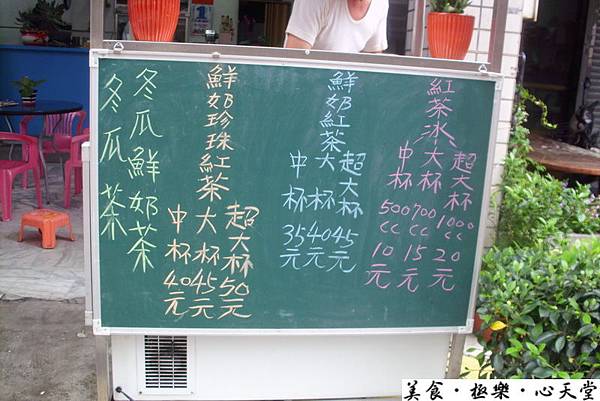 紅茶冰
中杯 500cc 10元
大杯 700cc 15元
超大杯 1000cc 20元
鮮奶紅茶
中杯 35元
大杯 40元
超大杯 45元
鮮奶珍珠紅茶
中杯 40元
大杯 45元
超大杯 50元
冬瓜鮮奶茶
冬瓜茶
美食·極樂·心天堂